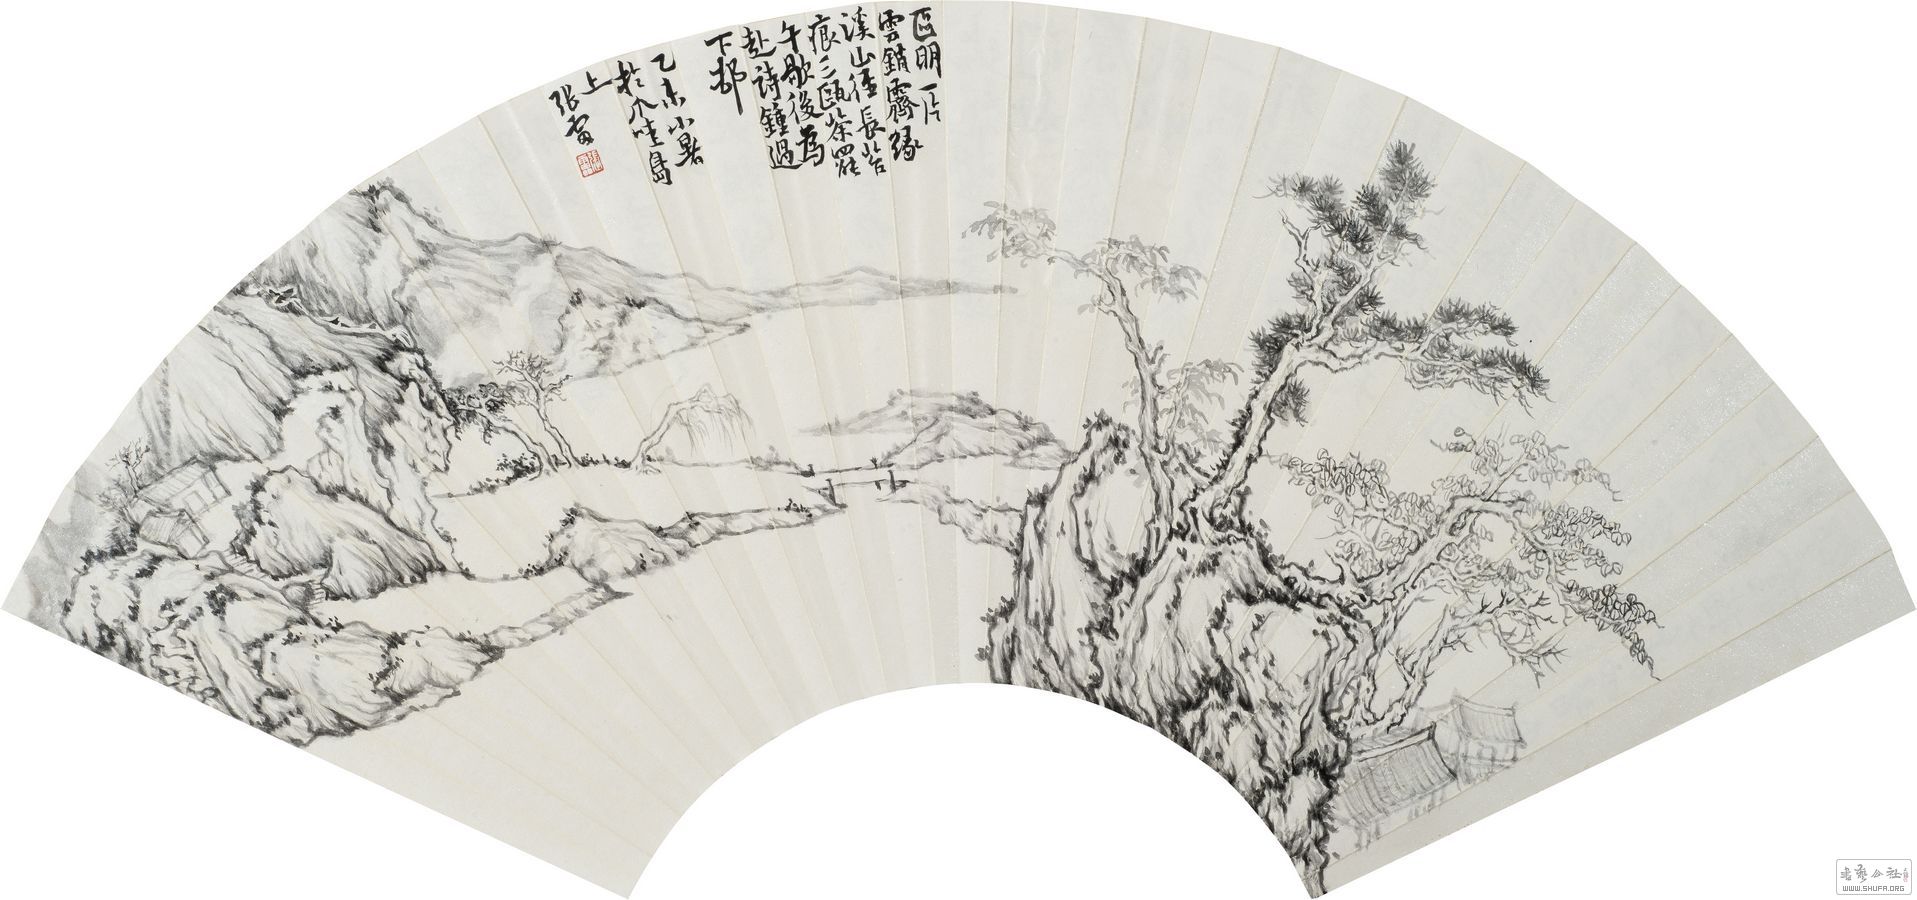 區明一片
雲銷霽緣
溪山徑長苔
痕三甌茶罷
午歇後為
赴詩鐘過
下邨
乙未小暑
於爪哇島
上
張雷
書藝公社
WWW.SHUFA.ORG